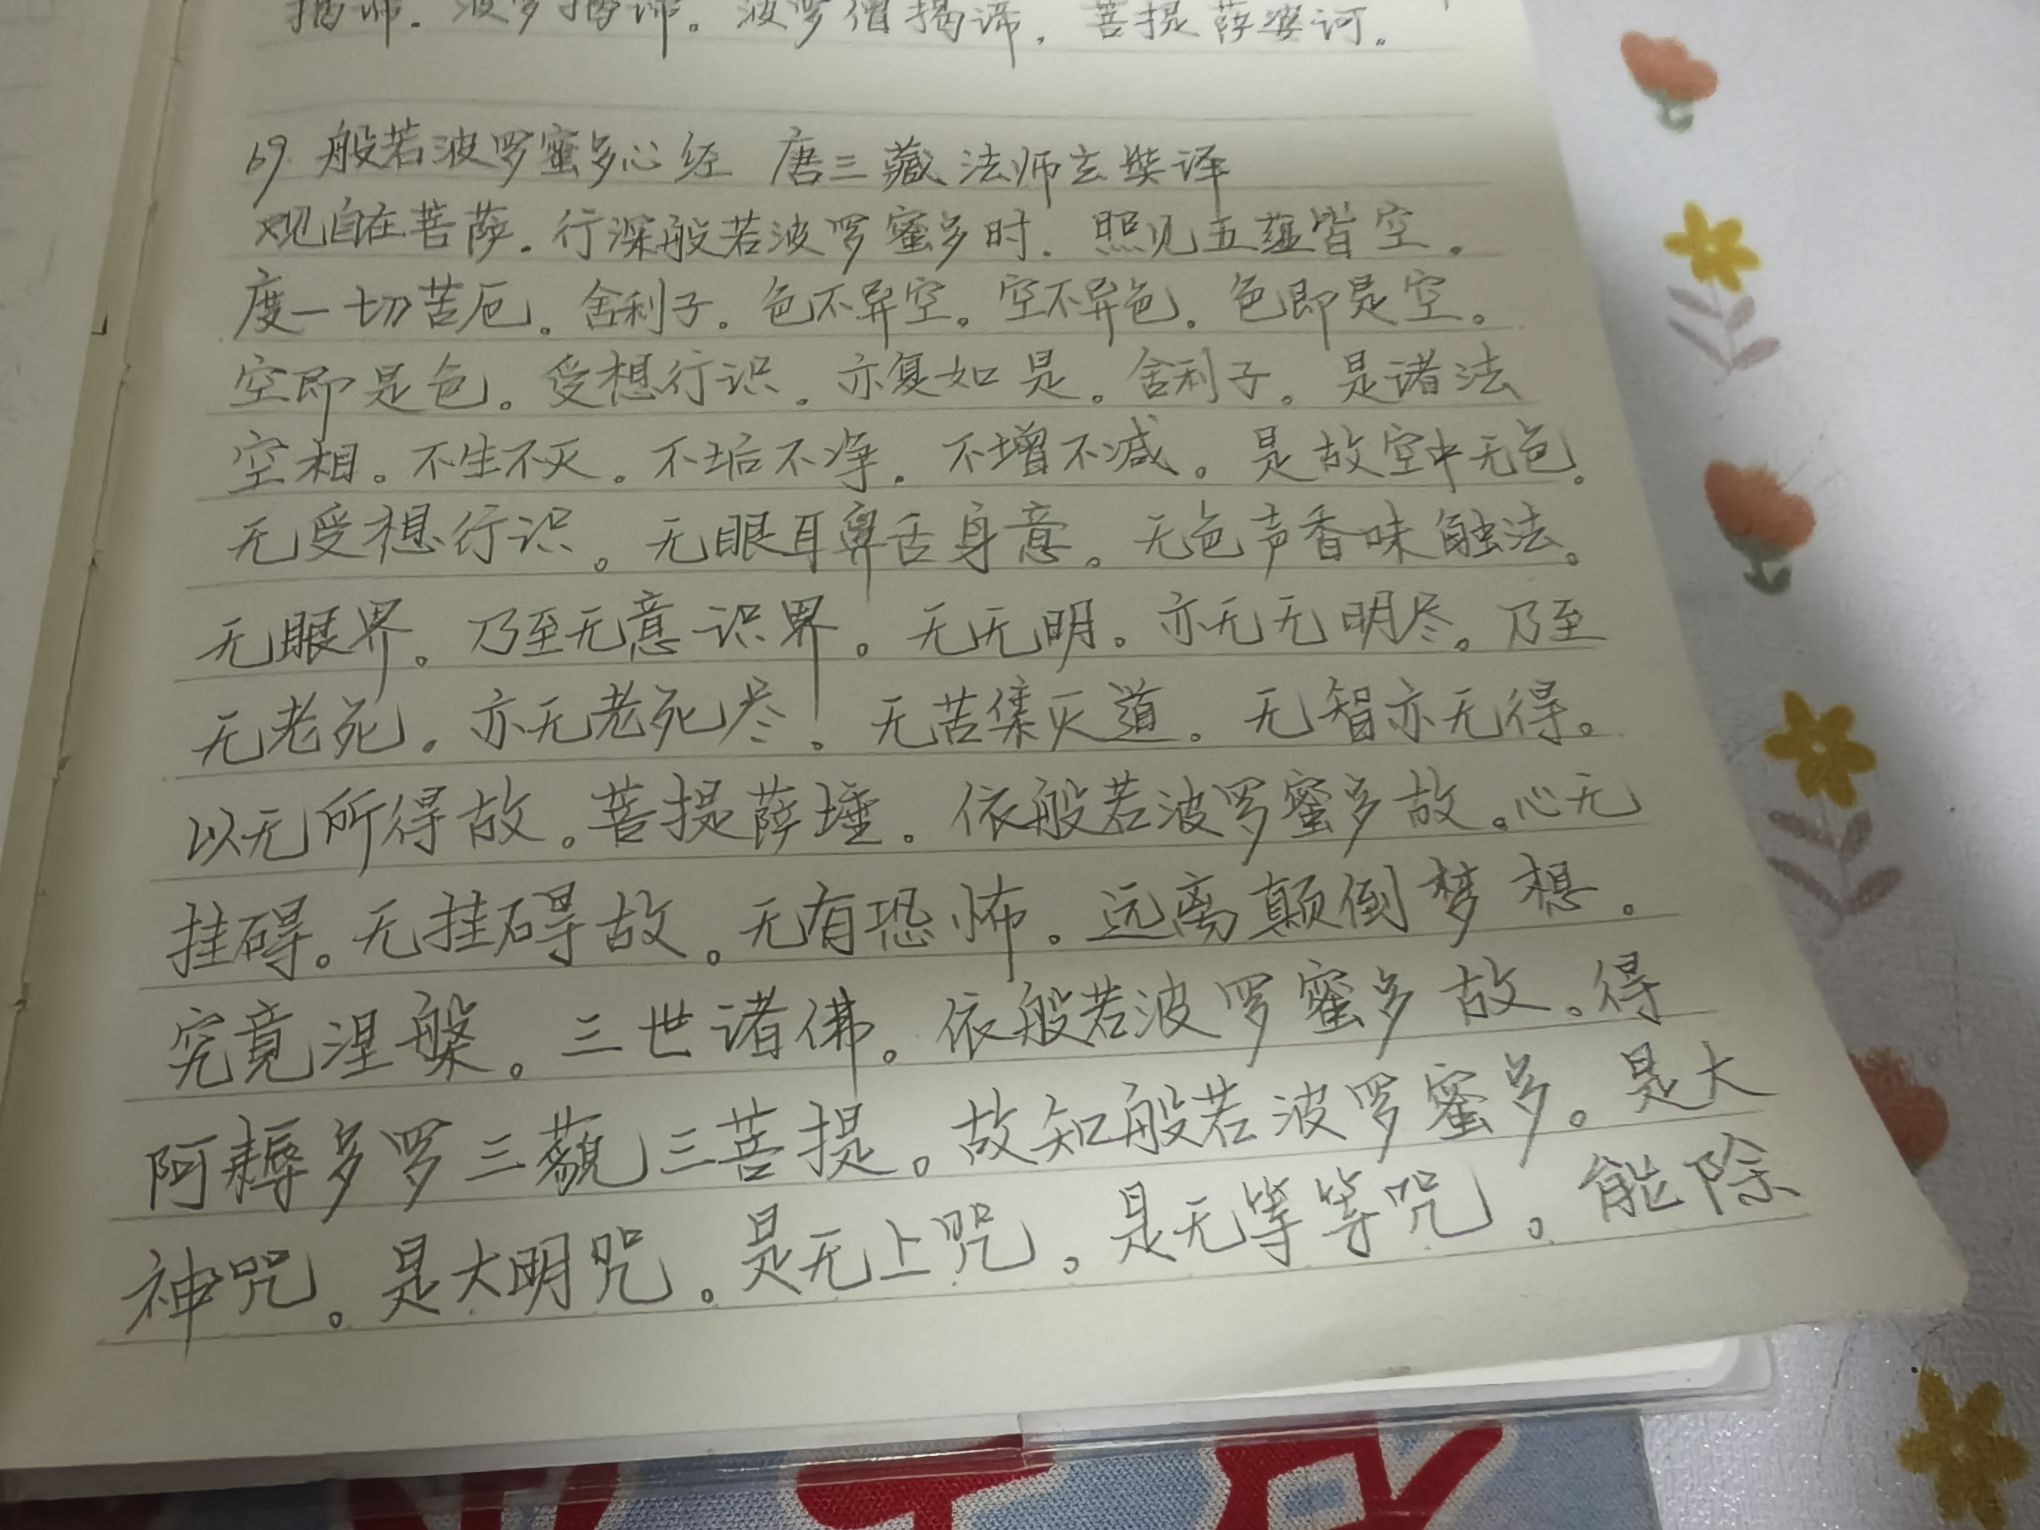 揭谛。波罗揭谛。波罗僧揭谛。菩提萨婆诃。
69 般若波罗蜜多心经 唐三藏法师玄奘译
观自在菩萨。行深般若波罗蜜多时。照见五蕴皆空。
度一切苦厄。舍利子。色不异空。空不异色。色即是空。
空即是色。受想行识。亦复如是。舍利子。是诸法
空相。不生不灭。不垢不净。不增不减。是故空中无色。
无受想行识。无眼耳鼻舌身意。无色声香味触法。
无眼界。乃至无意识界。无无明。亦无无明尽。乃至
无老死。亦无老死尽。无苦集灭道。无智亦无得。
以无所得故。菩提萨埵。依般若波罗蜜多故。心无
挂碍。无挂碍故。无有恐怖。远离颠倒梦想。
究竟涅槃。三世诸佛。依般若波罗蜜多故。得
阿耨多罗三藐三菩提。故知般若波罗蜜多。是大
神咒。是大明咒。是无上咒。是无等等咒。能除